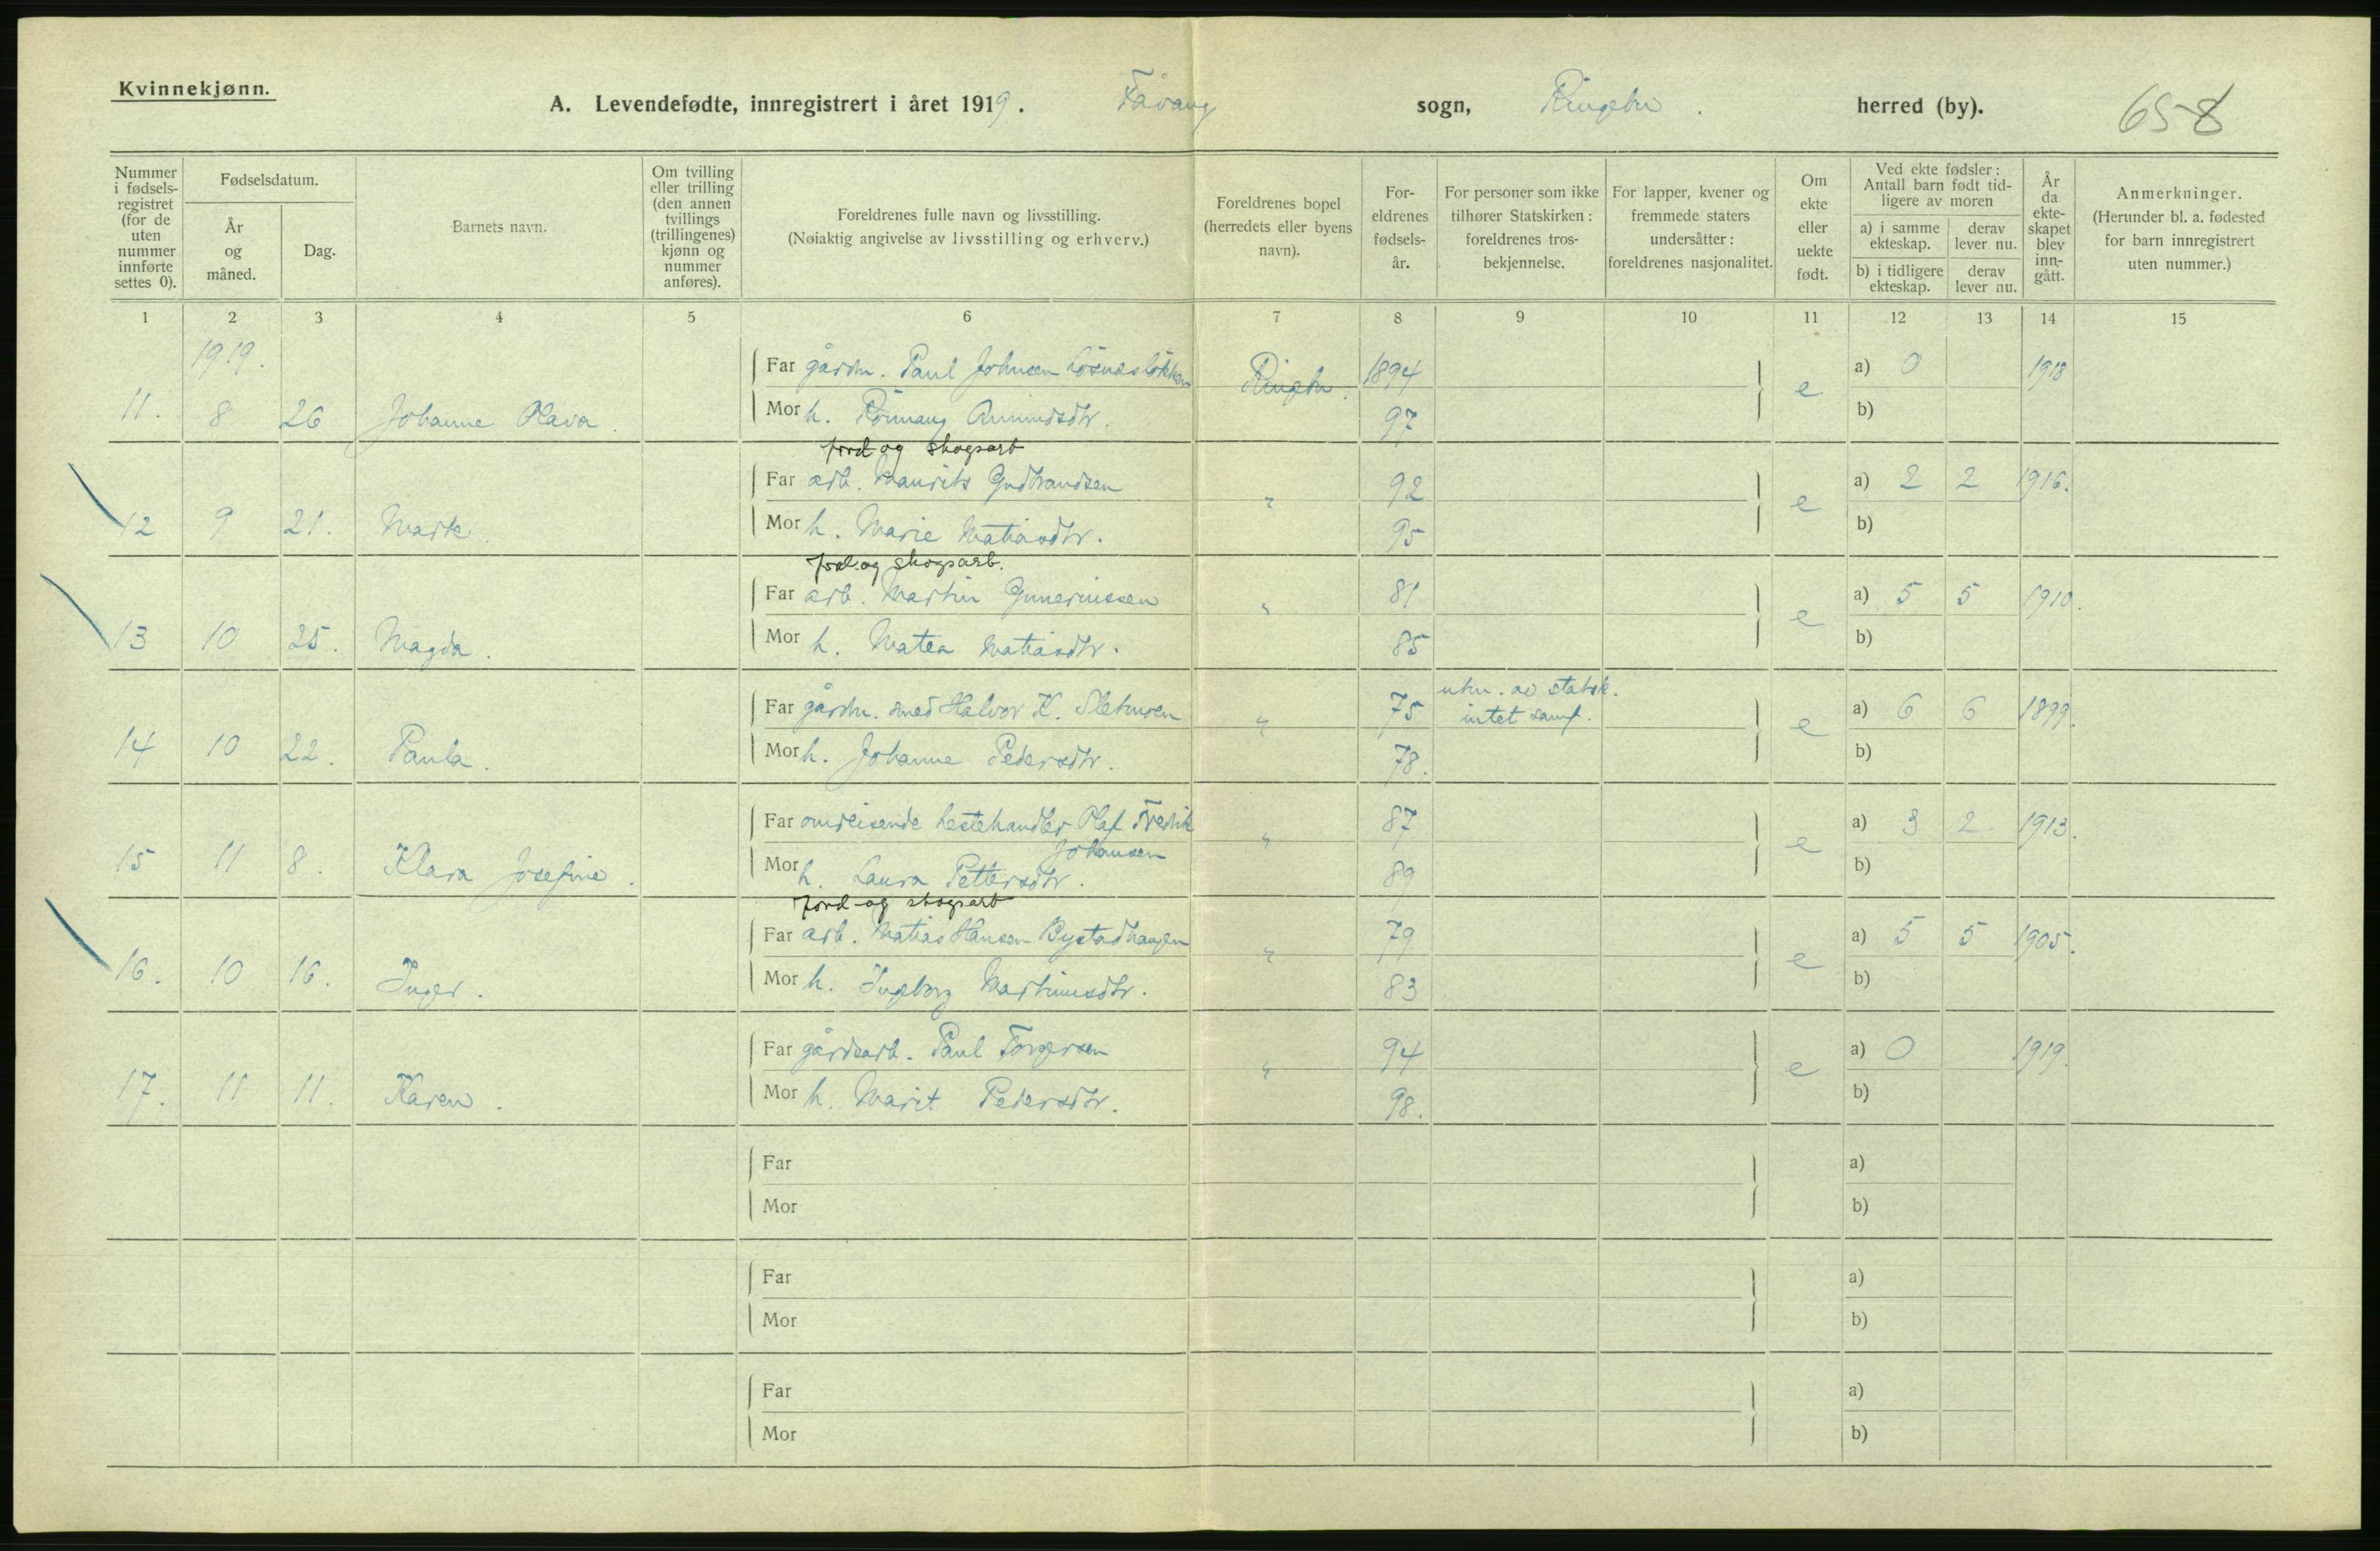 Kvinnekjønn.
A. Levendefødte, innregistrert i året 1919. Fåvang sogn, Ringebu. herred (by).
658
Nummer i fødsels-registret (for de uten nummer innførte settes 0).
Fødselsdatum.
År og måned.
Dag.
Barnets navn.
Om tvilling eller trilling (den annen tvillings (trillingenes) kjønn og nummer anføres).
Foreldrenes fulle navn og livsstilling.
(Nøiaktig angivelse av livsstilling og erhverv.)
Foreldrenes bopel (herredets eller byens navn).
For-eldrenes fødsels-år.
For personer som ikke tilhører Statskirken: foreldrenes tros-bekjennelse.
For lapper, kvener og fremmede staters undersåtter: foreldrenes nasjonalitet.
Om ekte eller uekte født.
Ved ekte fødsler: Antall barn født tid-ligere av moren
a) i samme ekteskap.
derav lever nu.
b) i tidligere ekteskap.
derav lever nu.
År da ekte-skapet blev inn-gått.
Anmerkninger.
(Herunder bl. a. fødested for barn innregistrert uten nummer.)
1 2 3 4 5 6 7 8 9 10 11 12 13 14 15
1919.
Far gårdm. Paul Johnsen Ringebu. 1894 a) 0 1918
11. 8 26 Johanne Olava. Mor h. Rönnaug Amundsdtr. 97 e b)
jord og skogsarb
Far arb. Maurits Gudbrandsen " 92 a) 2 2 1916.
12 9 21. Marte. Mor h. Marie Matiasdtr. 95 e b)
jord og skogsarb.
Far arb. Martin Guneriussen " 81 a) 5 5 1910.
13 10 25. Magda. Mor h. Matea Matiasdtr. 85 e b)
utm. av statsk.
Far gårdm. smed Halvor K. " 75 intet samf. a) 6 6 1899.
14 10 22. Paula. Mor h. Johanne Pedersdtr. 78. e b)
Far omreisende hestehandler Olaf Fredrik " 87 a) 3 2 1913.
Johansen
15 11 8. Klara Josefine. Mor h. Laura Pettersdtr. 89 e b)
jord og skogsarb
Far arb. Matias Hansen Bystadhaugen " 79 a) 5 5 1905.
16. 10 16. Inger. Mor h. Ingeborg Martinusdtr. 83 e b)
Far gårdsarb. Paul Torgersen " 94 a) 0 1919.
17. 11 11. Karen. Mor h. Marit Pedersdtr. 98. e b)
Far a)
Mor b)
Far a)
Mor b)
Far a)
Mor b)